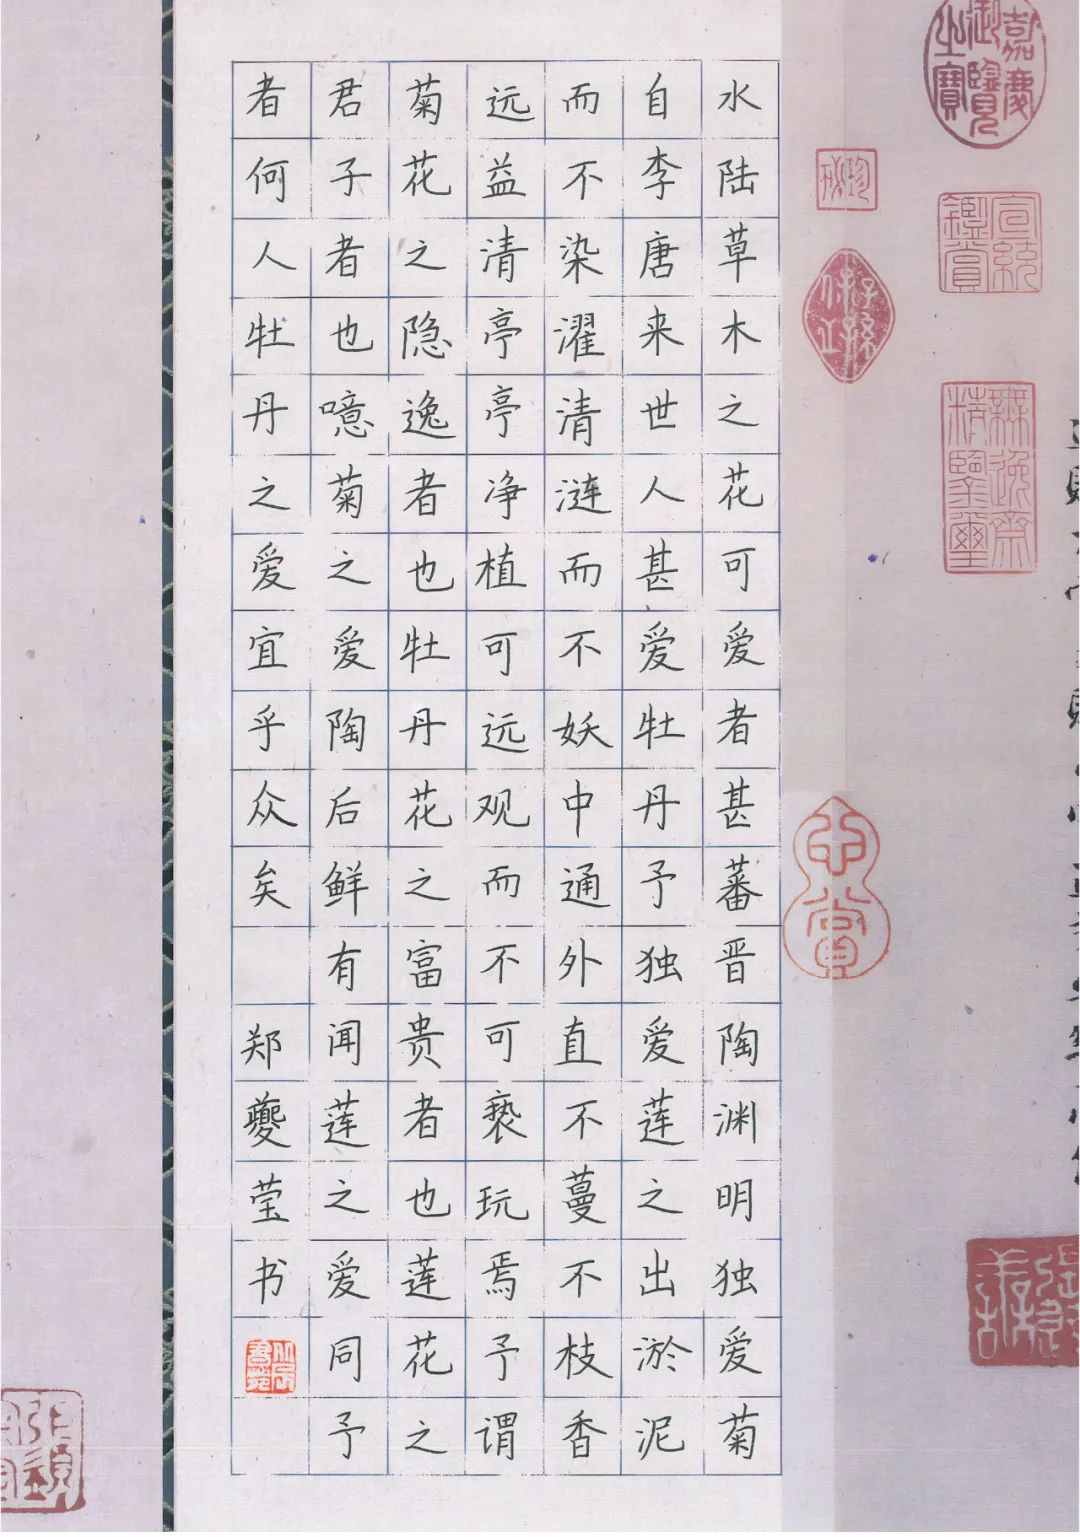 水陆草木之花可爱者甚蕃晋陶渊明独爱菊
自李唐来世人甚爱牡丹予独爱莲之出淤泥
而不染濯清涟而不妖中通外直不蔓不枝香
远益清亭亭净植可远观而不可亵玩焉予谓
菊花之隐逸者也牡丹花之富贵者也莲花之
君子者也噫菊之爱陶后鲜有闻莲之爱同予
者何人牡丹之爱宜乎众矣 郑夔莹书
嘉慶御覽之寶
宣統鑑賞
無逸齋精鑒璽
子孫
心賞